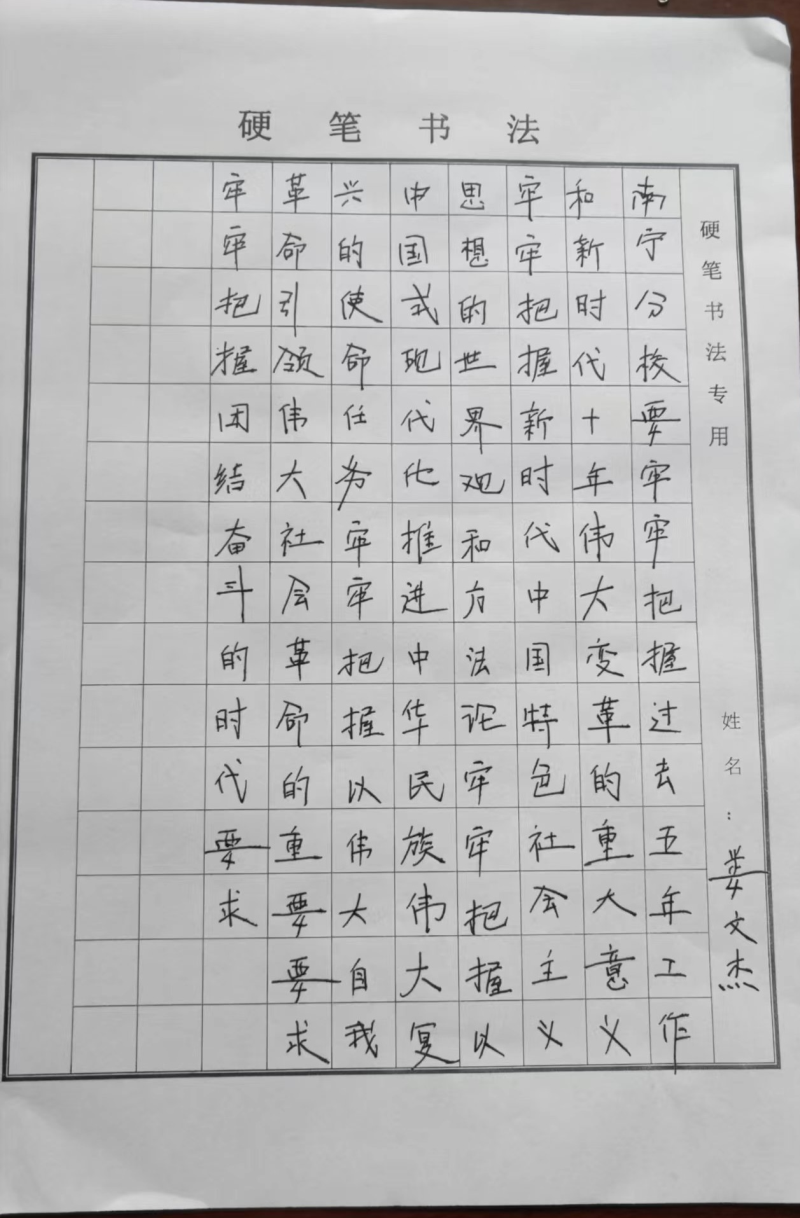 硬笔书法
硬笔书法专用
姓名：姜文杰
南宁分校要牢牢把握过去五年工作
和新时代十年伟大变革的重大意义
牢牢把握新时代中国特色社会主义
思想的世界观和方法论牢牢把握以
中国式现代化推进中华民族伟大复
兴的使命任务牢牢把握以伟大自我
革命引领伟大社会革命的重要要求
牢牢把握团结奋斗的时代要求